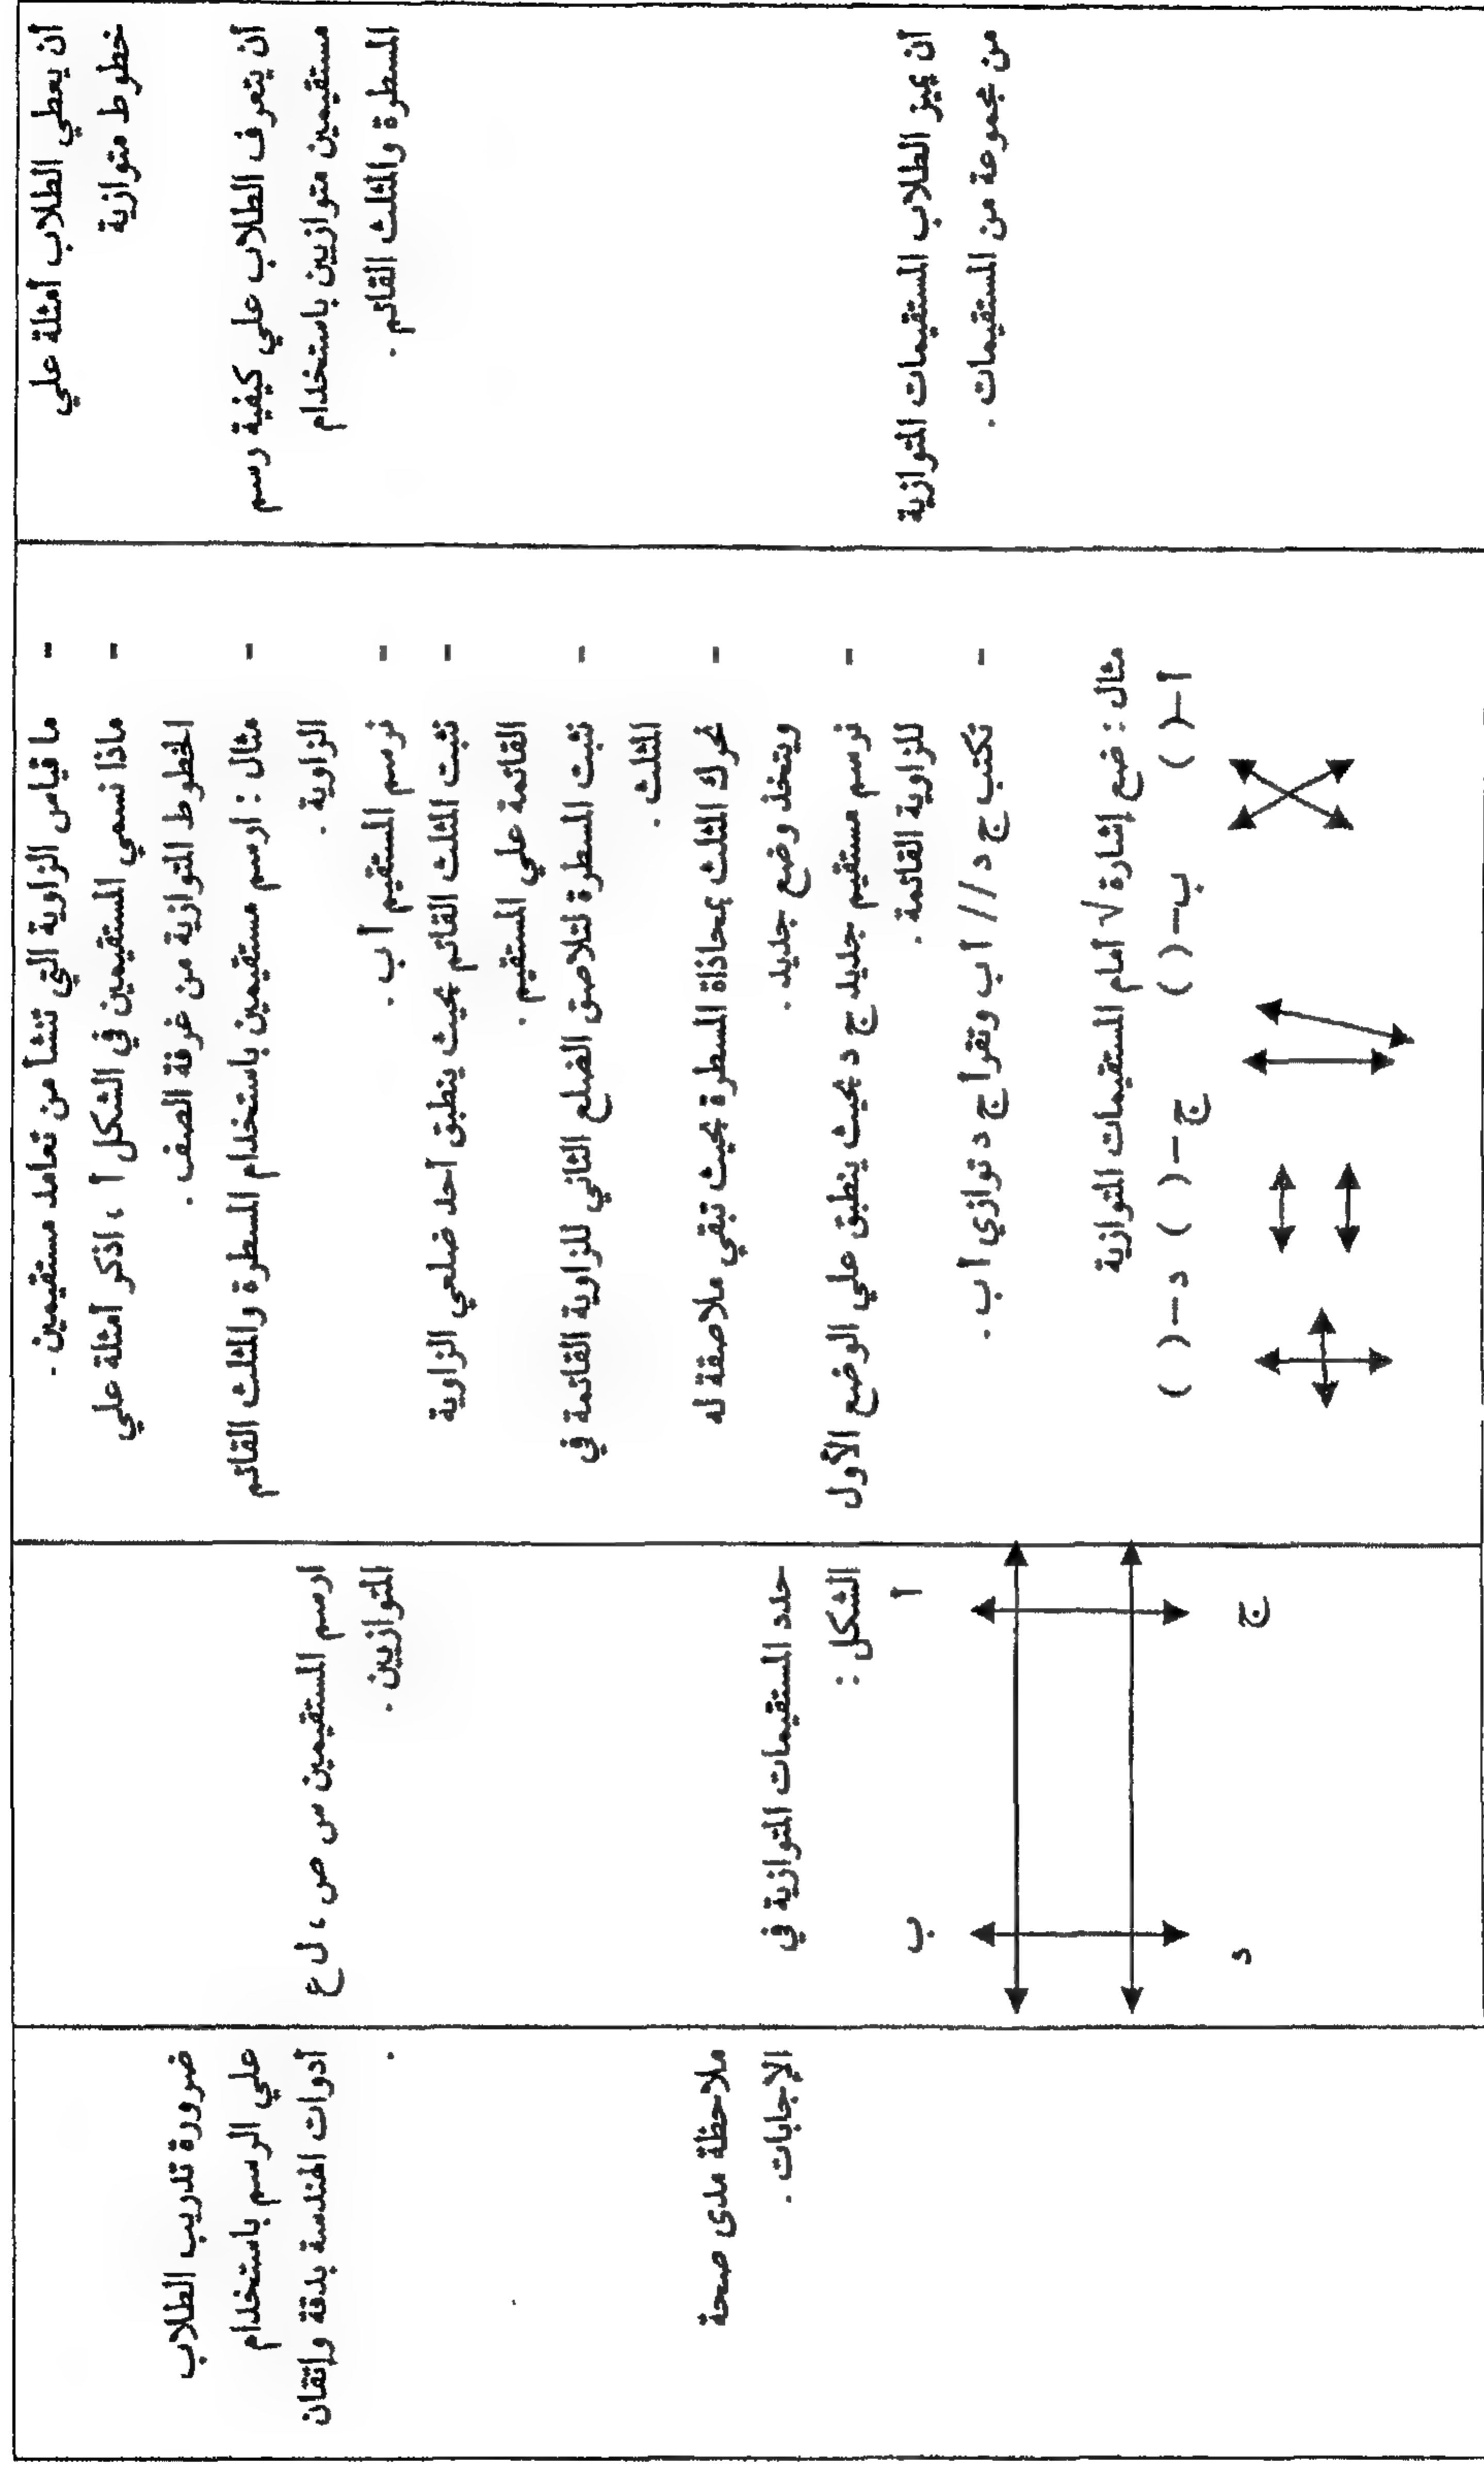 أن يعطي الطلاب أمثلة علي
خطوط متوازية
أن يتعرف الطلاب علي كيفية رسم
مستقيمين متوازيين باستخدام
المسطرة والمثلث القائم .
أن يميز الطلاب المستقيمات المتوازية
من مجموعة من المستقيمات .
- ما قياس الزاوية التي تنشأ من تعامد مستقيمين .
- ماذا نسمي المستقيمين في الشكل أ ، اذكر أمثلة علي
الخطوط المتوازية من غرفة الصف .
- مثال : ارسم مستقيمين باستخدام المسطرة والمثلث القائم
الزاوية .
- نرسم المستقيم أ ب .
- نثبت المثلث القائم بحيث ينطبق أحد ضلعي الزاوية
القائمة علي المستقيم .
- نثبت المسطرة لتلاصق الضلع الثاني للزاوية القائمة في
المثلث .
- نحرك المثلث بمحاذاة المسطرة بحيث تبقي ملاصقة له
ويتخذ وضع جديد .
- نرسم مستقيم جديد ج د بحيث ينطبق علي الوضع الأول
للزاوية القائمة .
- نكتب ج د // أ ب وتقرأ ج د توازي أ ب .
مثال : ضع إشارة √ أمام المستقيمات المتوازية
أ-( ) ب-( ) ج-( ) د-( )
ارسم المستقيمين س ص ، ل ع
المتوازيين .
حدد المستقيمات المتوازية في
الشكل :
أ ب
ج د
ضرورة تدريب الطلاب
علي الرسم باستخدام
أدوات الهندسة بدقة وإتقان
.
ملاحظة مدى صحة
الإجابات .